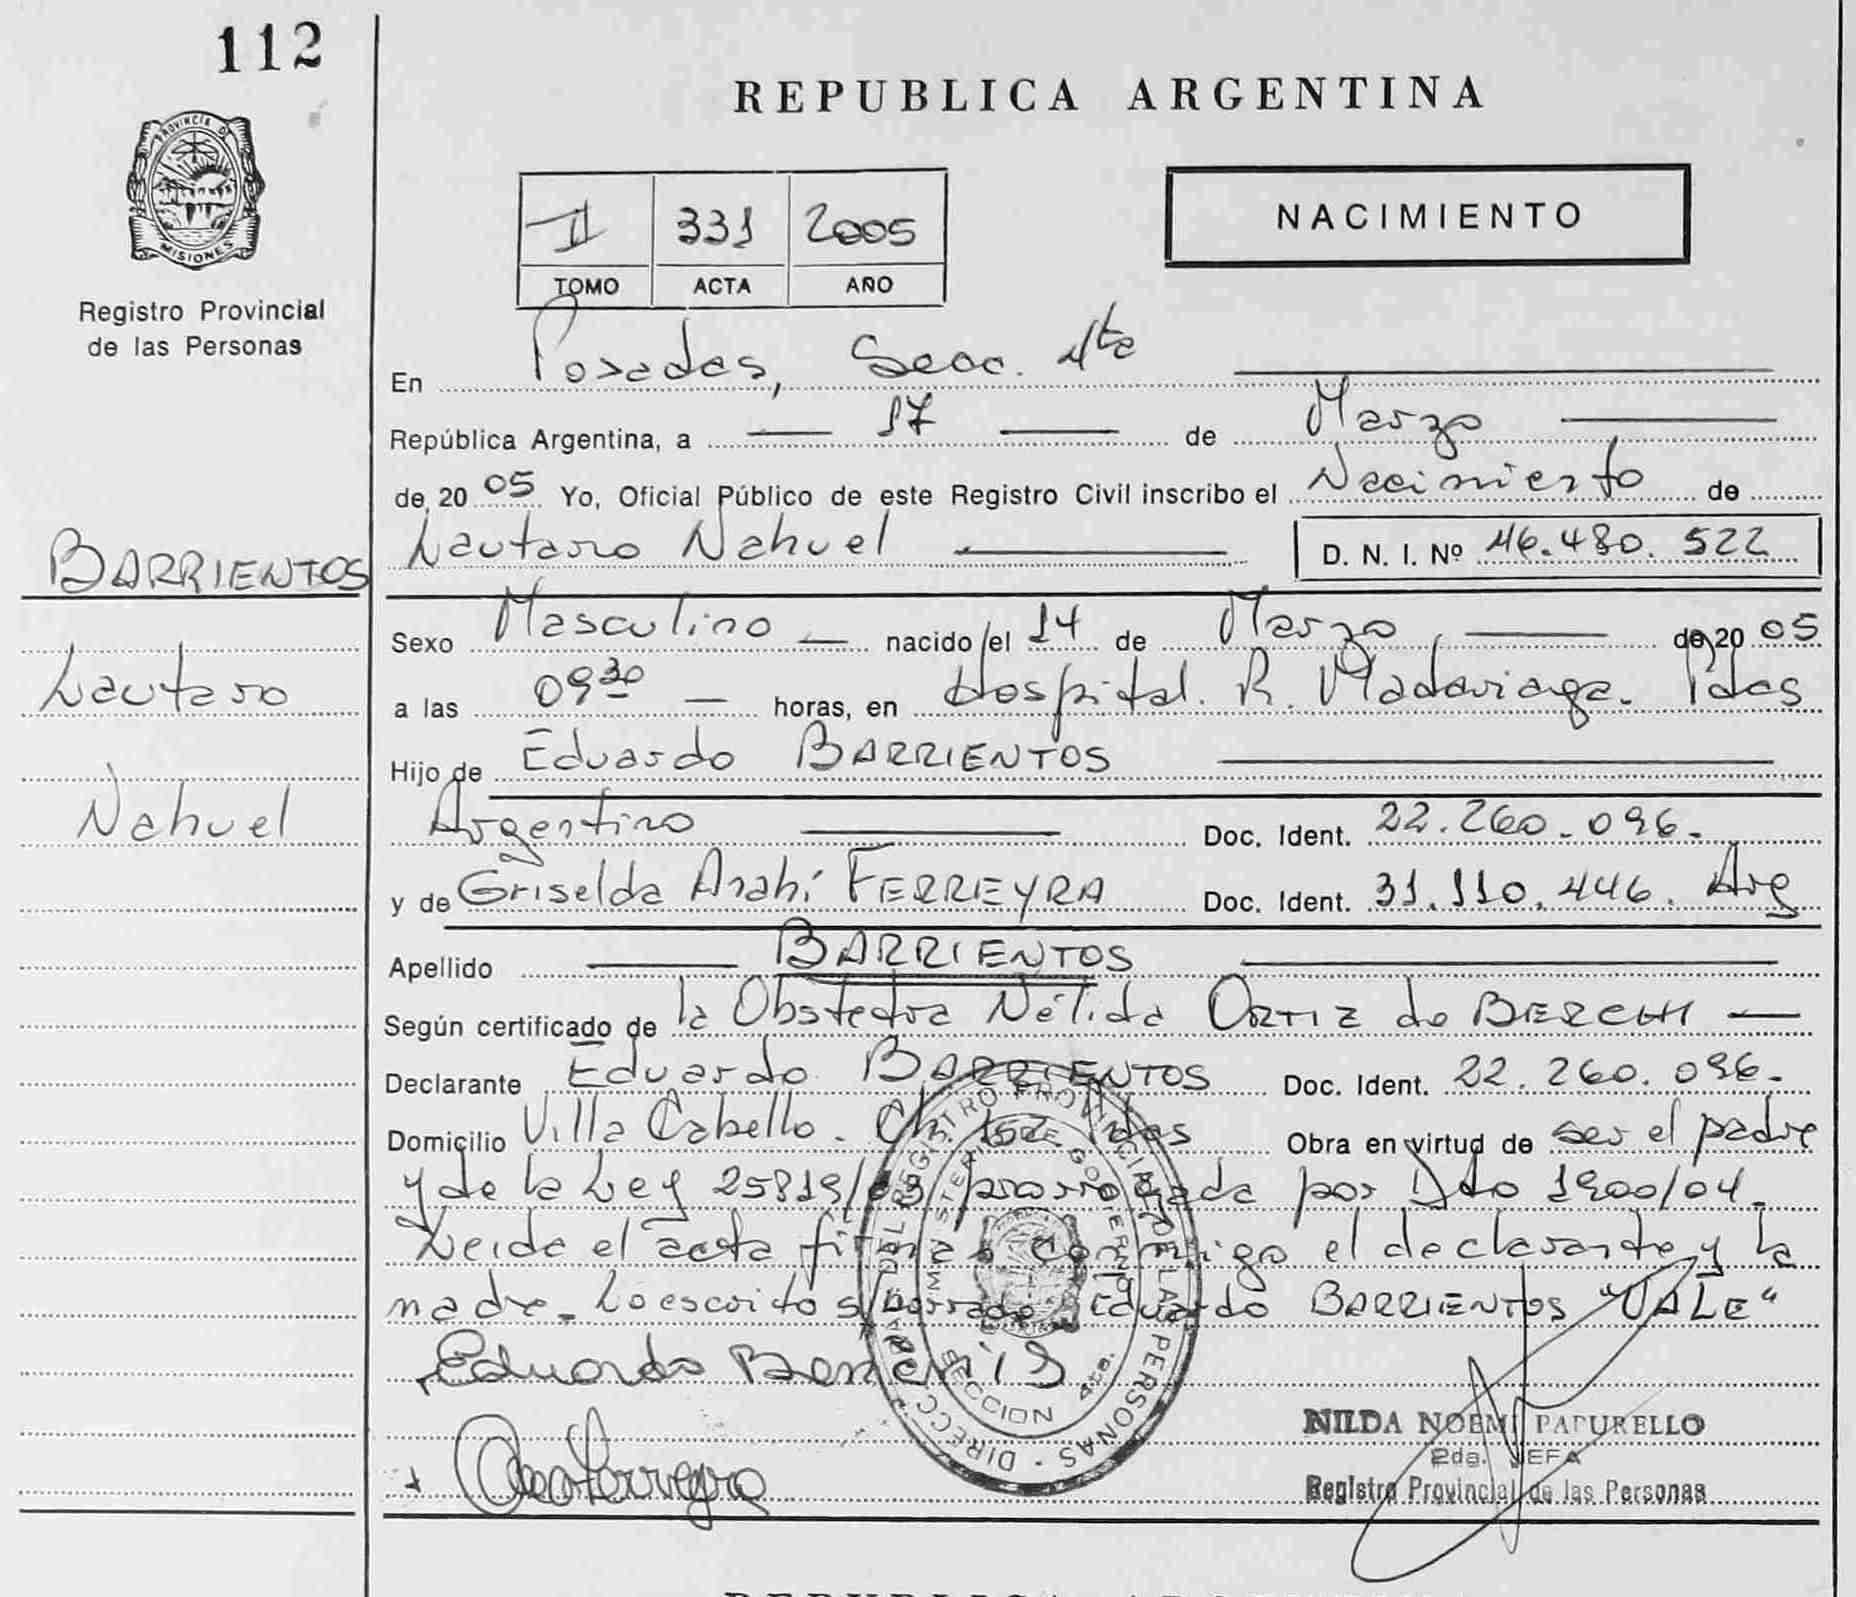 112
PROVINCIA DE
MISIONES
Registro Provincial
de las Personas
BARRIENTOS
Lautaro
Nahuel
REPUBLICA ARGENTINA
II 331 2005
TOMO ACTA AÑO
NACIMIENTO
En Posadas, Secc. 4ta
República Argentina, a 17 de Marzo
de 20 05 Yo, Oficial Público de este Registro Civil inscribo el Nacimiento de
Lautaro Nahuel D. N. I. Nº 46.480.522
Sexo Masculino nacido el 14 de Marzo de 20 05
a las 09 30 horas, en Hospital. R. Madariaga. Pdas
Hijo de Eduardo BARRIENTOS
Argentino Doc. Ident. 22.260.096.
y de Griselda Anahí FERREYRA Doc. Ident. 31.110.446. Arg
Apellido BARRIENTOS
Según certificado de la Obstetra Nélida ORTIZ de BERCHI
Declarante Eduardo BARRIENTOS Doc. Ident. 22.260.096.
Domicilio Villa Cabello. Ch. 152 Pdas Obra en virtud de ser el padre
y de la Ley 25819/03 prorrogada por Dto 1900/04.
Leida el acta firman conmigo el declarante y la
madre. Lo escrito s/borrado, Eduardo BARRIENTOS "VALE"
Eduardo
DIRECC. GRAL. DEL REGISTRO PROVINCIAL DE LAS PERSONAS
MINISTERIO DE GOBIERNO
SECCION 4ta.
NILDA NOEMI PAPURELLO
2da. JEFA
Registro Provincial de las Personas